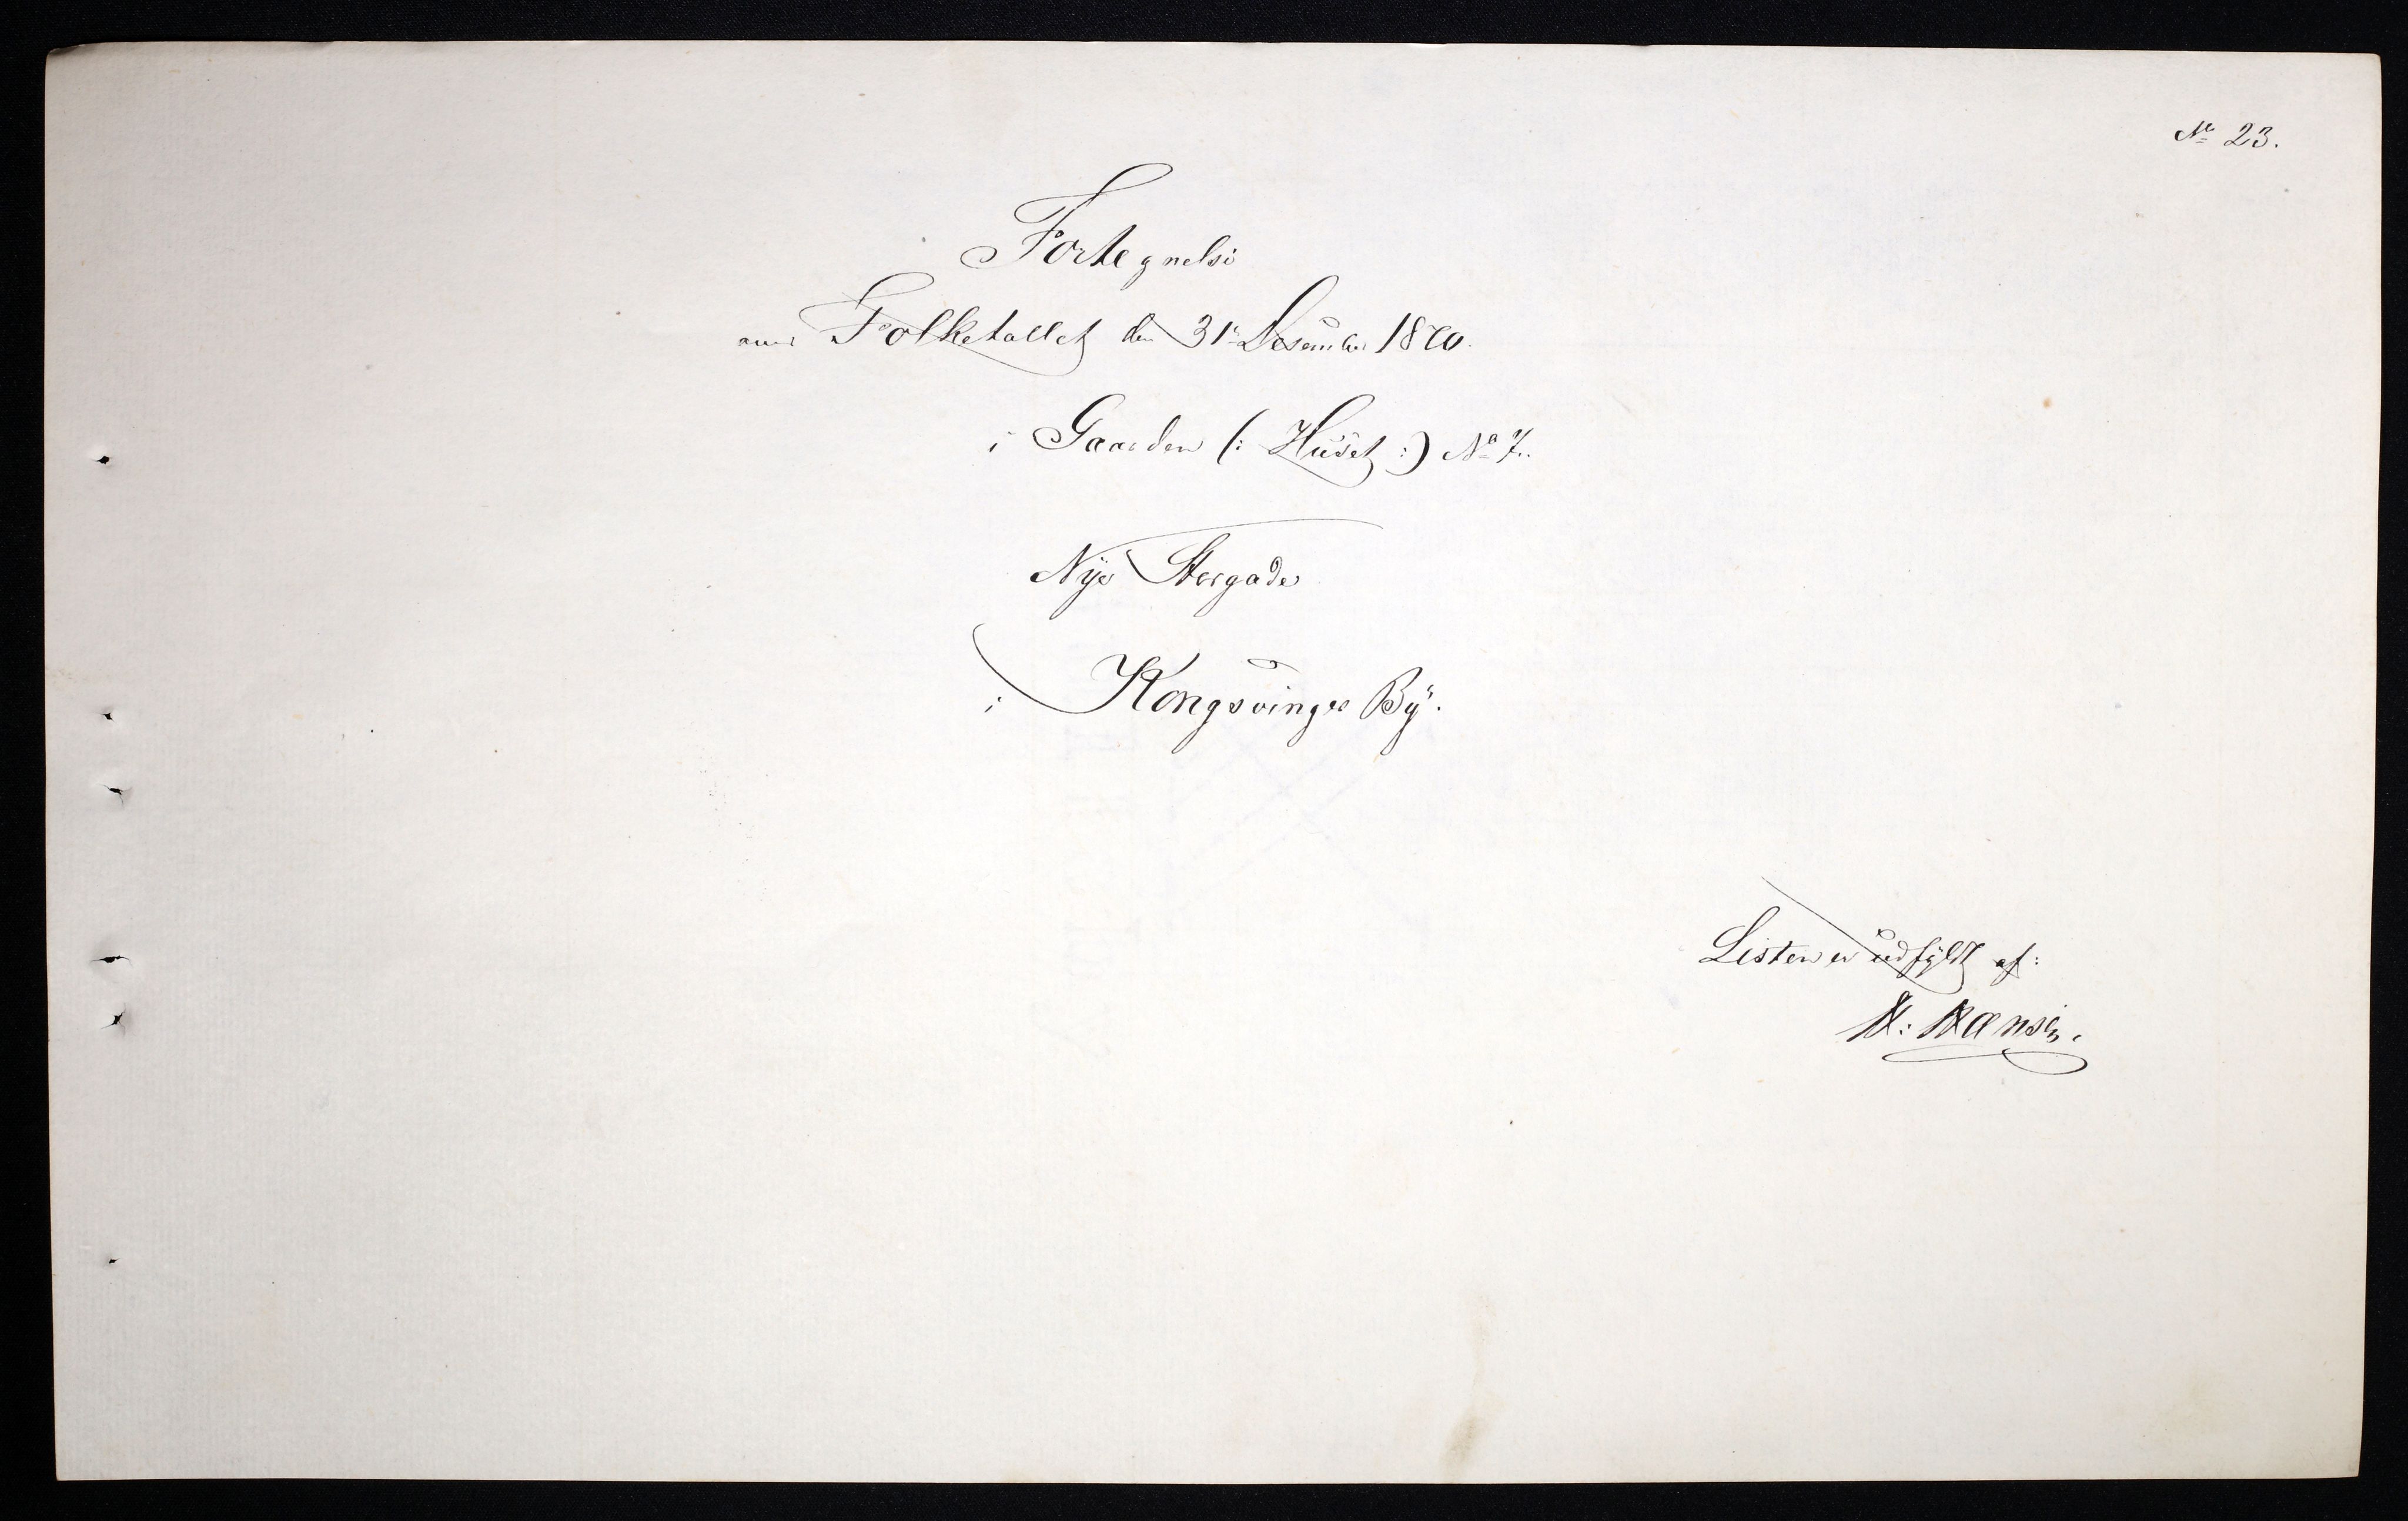 No 23.
Fortegnelse
over Folketallet den 31te Desember 1870.
i Gaarden (: Huset :) No 7.
Nye Storgade
i Kongsvinger By.
Listen er udfyldt af:
H: Hansen.